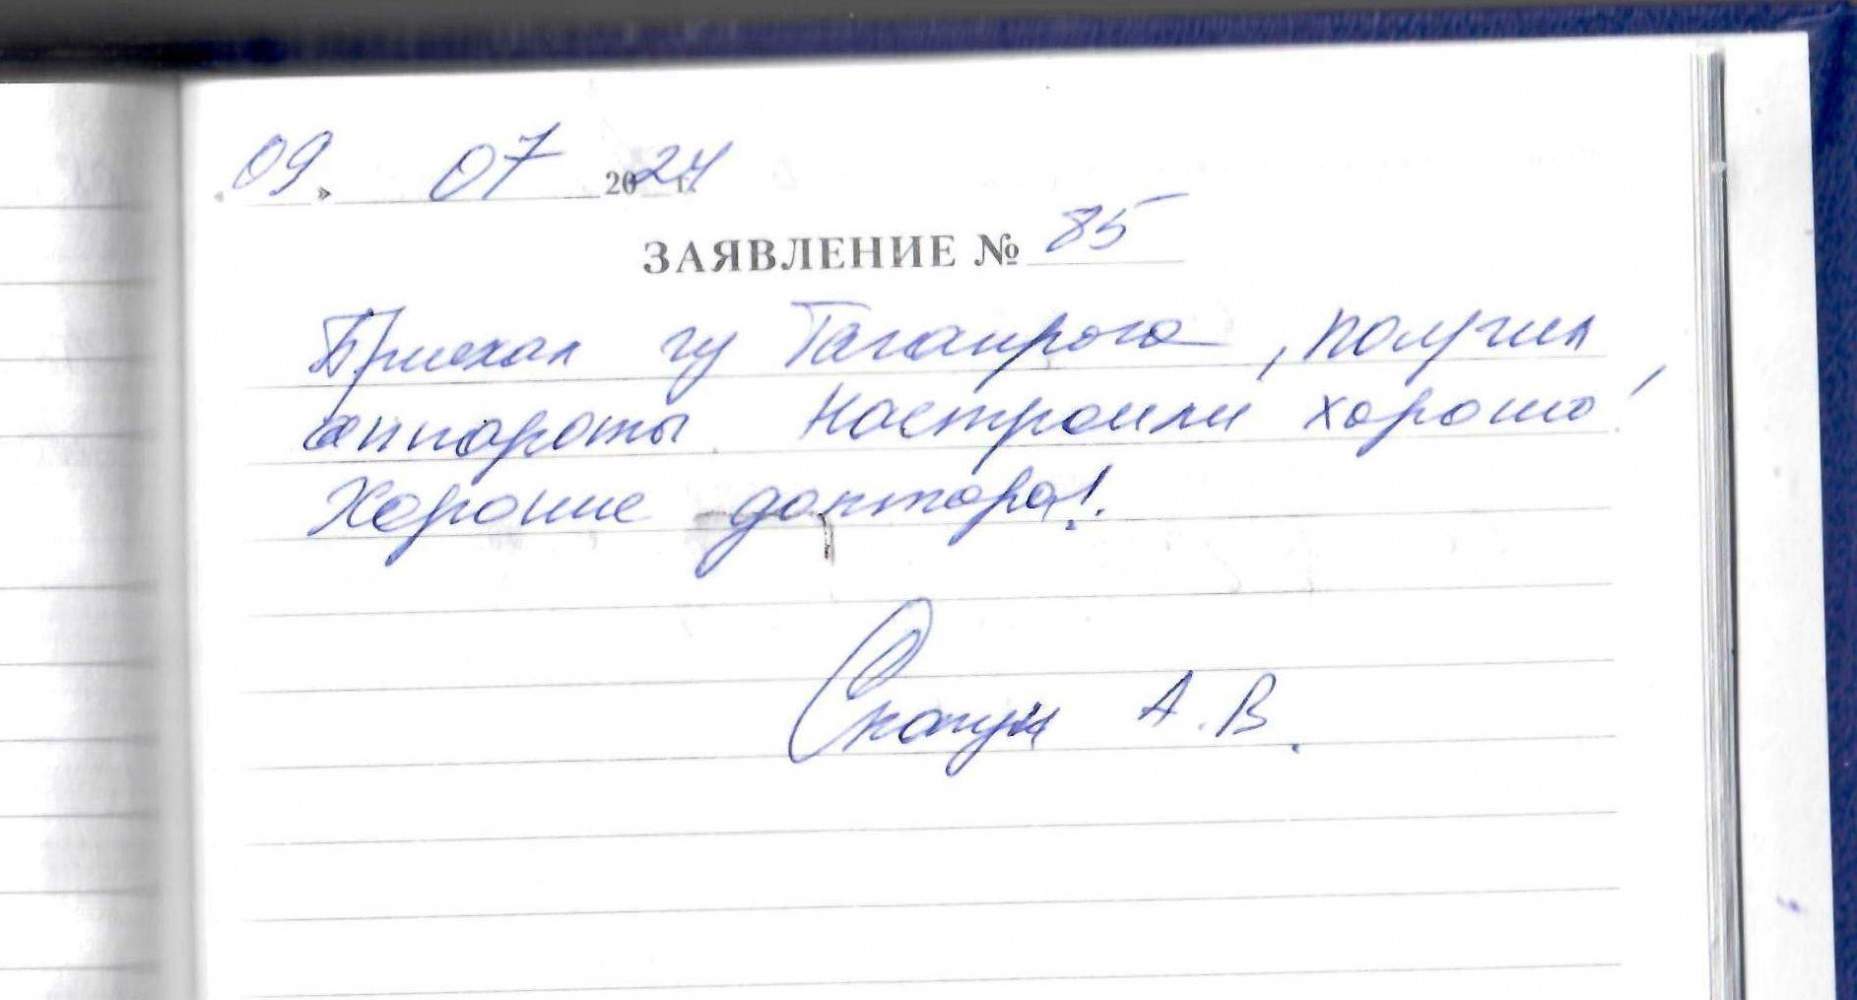 « 09 » 07 2024 г.
ЗАЯВЛЕНИЕ № 85
Приехал гу Таганрога, получил
аппараты настроили хорошо!
Хорошие доктора!
А.В.